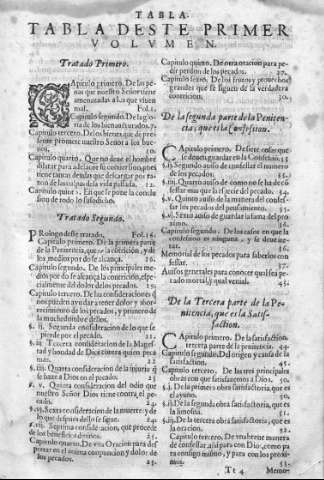 TABLA.
TABLA DESTE PRIMER
VOLVMEN.
Tratado Primero.
CApitulo primero. De las pe-
nas que nuestro Señor tiene
amenazadas a los que viuen
mal. Fol.1.
Capitulo segundo. De la glo-
ria de los bienauenturados. 7.
Capitulo tercero. De los bienes que de pre-
sente promete nuestro Señor a los bue-
nos. 10.
Capitulo quarto. Que no deue el hombre
dilatar para adelante su conuersion, pues
tiene tantas deudas que descargar por ra-
zon de los males de la vida passada. 12.
Capitulo quinto. En que se pone la conclu-
sion de todo lo susodicho.
Tratado Segundo.
PRologo deste tratado. Fol.16.
Capitulo primero. De la primera parte
de la Penitencia, que es la contricion, y de
los medios por do se alcança. 16.
Capitulo segundo. De los principales me-
dios por do se alcança la contricion, especial-
mente del dolor de los pecados. 19.
Capitulo tercero. De las consideraciones q̃
nos pueden ayudar a tener dolor y abor-
recimiento de los pecados, y primero de
la muchedumbre dellos.
§. ii. Segunda consideracion de lo que se
pierde por el pecado.
§. iii. Tercera consideracion de la Mages-
tad y bondad de Dios contra quien peca-
mos. 22.
§. iiii. Quarta consideracion de la injuria q̃
se haze a Dios en el pecado. 23.
§. v. Quinta consideracion del odio que
nuestro Señor Dios tiene contra el pe-
cado. 24.
§. vi. Sexta consideracion de la muerte y de
lo que despues della se sigue. 24.
§. vii. Septima consideracion, que procede
de los beneficios diuinos. 25.
Capitulo quarto. De vna Oracion para des-
pertar en el anima conpuncion y dolor de
los pecados. 25.
Capitulo quinto. De otra oracion para pe-
dir perdon de los pecados. 27.
Capitulo sexto. De los frutos y prouechos
grandes que se siguen de la verdadera
contricion. 30.
De la segunda parte de la Peniten-
cia, que es la Confession.
CApitulo primero. De siete cosas que
se deuen guardar en la Confession. 32
§. ii. Segundo auiso de confessar el numero
de los pecados. 33.
§. iii. Quarto auiso de como no se ha de cõ-
fessar mas que la especie del pecado. 34.
§. v. Quinto auiso de la manera del confes-
sar los pecados del pensamiento. 35.
§. vi. Sexto auiso de guardar la fama del pro-
ximo. 36.
Capitulo segundo. De los casos en que la
confession es ninguna, y se deue ite-
rar. 36.
Memorial de los pecados para saberlos con-
fessar. 37.
Auisos generales para conocer qual sea pe-
cado mortal, y qual venial. 45.
De la Tercera parte de la Pe-
nitencia, que es la Satis-
faction.
CApitulo primero. De la satisfaction,
tercera parte de la penitencia. 44.
Capitulo segundo. Del origen y causa de la
satisfaction. 45.
Capitulo tercero. De las tres principales
obras con que satisfazemos a Dios.
§. i. De la primera obra satisfactoria, que es
el ayuno.
§. ii. De la segunda obra satisfactoria, que es
la limosna. 51.
§. iii. De la tercera obra satisfactoria, que es
la oracion. 52.
Capitulo tercero. De vna breue manera
de confessar, assi para con Dios, como pa-
ra consigo mismo, y para con los proxi-
mos. 53.
Tt 4 Memo-